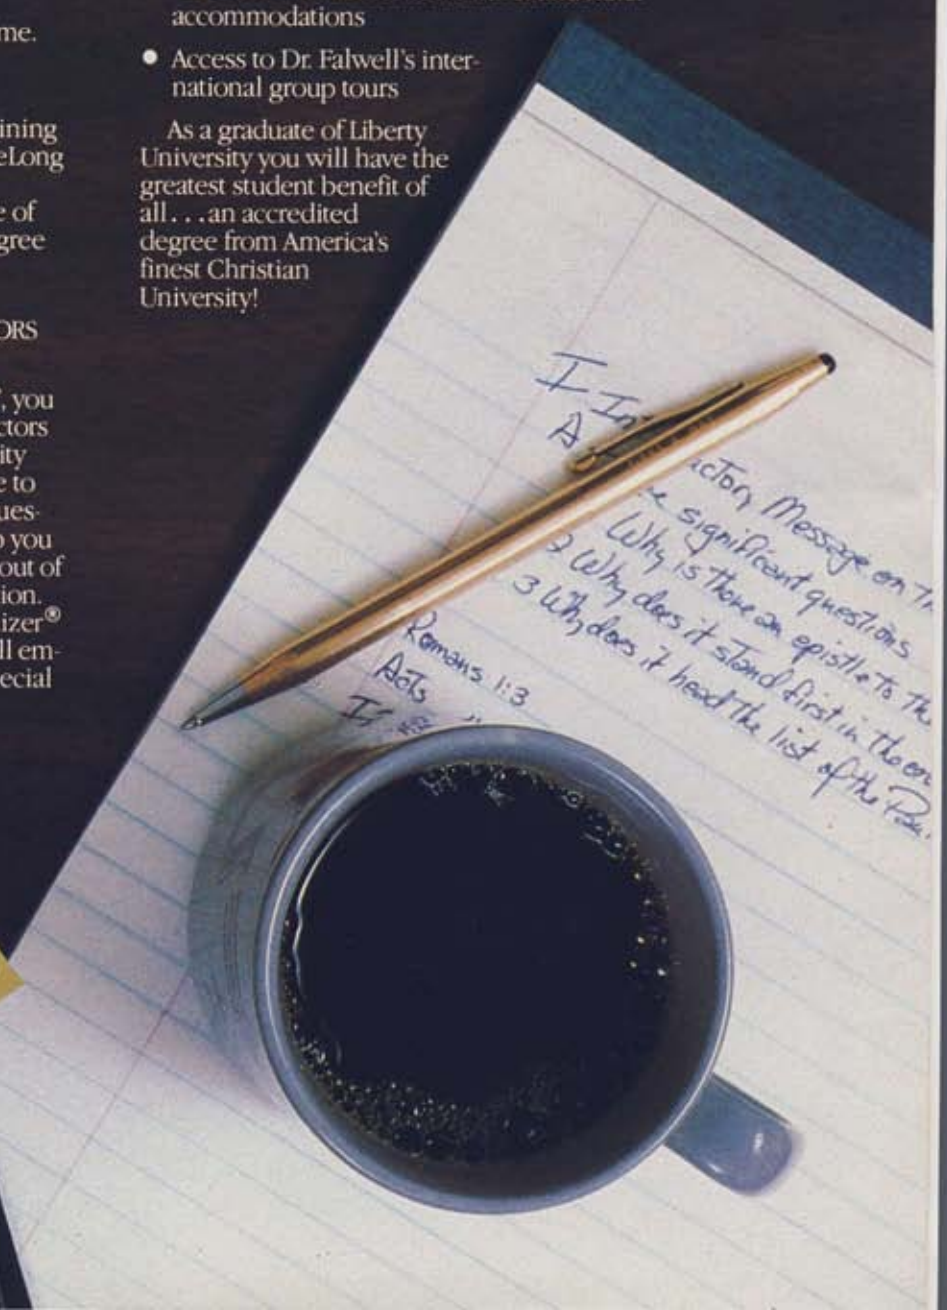 me.
ining
eLong
e of
gree
ORS
, you
ctors
ity
e to
ues-
o you
out of
ion.
izer®
ll em-
ecial
accommodations
• Access to Dr. Falwell's inter-
national group tours
As a graduate of Liberty
University you will have the
greatest student benefit of
all...an accredited
degree from America's
finest Christian
University!
I In
A
uctory Message on Th
significant questions
Why is there an epistle to the
2 Why does it stand first in the
3 Why does it head the list of the
Romans 1:3
Acts
If